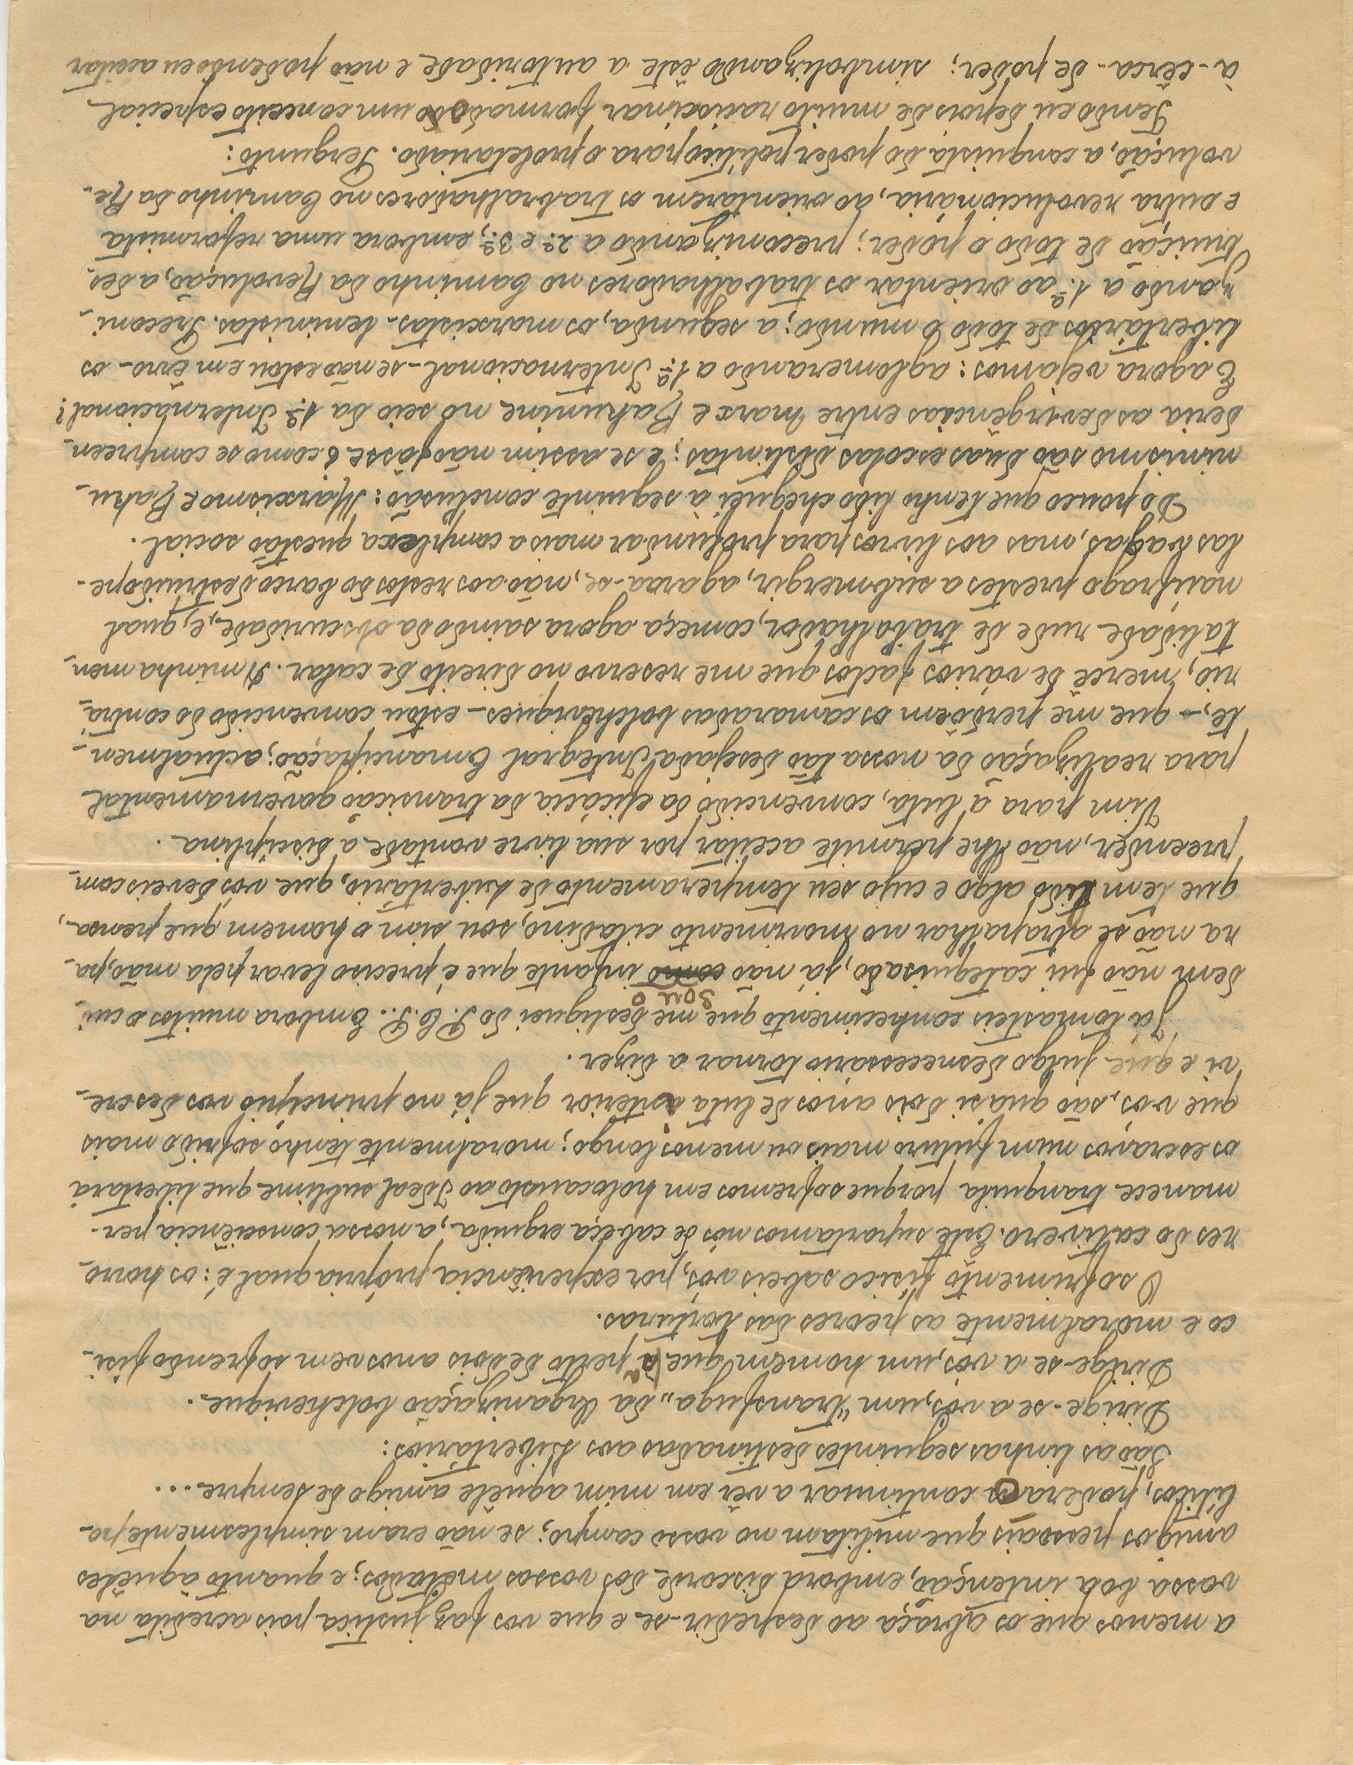 a menos que os abraça ao despedir-se e que vos faz justiça pois acredita na
vossa boa intenção, embora discorde dos vossos métodos; e quanto àqueles
amigos pessoais que militam no vosso campo; se não eram simplesmente po-
líticos, poderão continuar a vêr em mim aquêle amigo de sempre...
São as linhas seguintes destinadas aos Libertários:
Dirige-se a vós, um "transfuga" da Organização bolchevique.
Dirige-se a vós, um homem que há perto de dois anos vem sofrendo físi-
co e moralmente as peores das torturas.
O sofrimento físico sabeis vós, por experiência própria qual é: os horro-
res do cativeiro. Este suportamos nós de cabeça erguida, a nossa consciência per-
manece tranquila porque sofremos em holocausto ao Ideal sublime que libertará
os escravos num futuro mais ou menos longo; moralmente tenho sofrido mais
que vós, são quási dois anos de luta interior que já no principio vos descre-
vi e que julgo desnecessário tornar a dizer.
Já tomasteis conhecimento que me desliguei do P.C.P.. Embora muitos o cui-
dem não fui catequisado, já não sou o infante que é preciso levar pela mão, pa-
ra não se atrapalhar no movimento citadino, sou sim o homem que pensa,
que tem lido algo e cujo seu temperamento de Libertário, que vós deveis com-
preender, não lhe permite aceitar por sua livre vontade a disciplina.
Vim para a luta, convencido da eficácia da transição governamental
para realização da nossa tão desejada Integral Emancipação; actualmen-
te, - que me perdôem os camaradas bolcheviques - estou convencido do contrá-
rio, mercê de vários factos que me reservo no direito de calar. A minha men-
talidade rude de trabalhador, começa agora saindo da obscuridade, e, qual
naúfrago prestes a submergir, agarra-se, não aos restos do barco destruido pe-
las vagas, mas aos livros para profundar mais a complexa questão social.
Do pouco que tenho lido cheguei à seguinte conclusão: Marxismo e Baku-
ninismo são duas escolas distintas; e se assim não fôsse como se compreen-
deria as devirgências entre Marx e Bakunine no seio da 1.ª Internacional?
E agora vejamos: aglomerando a 1.ª Internacional - se não estou em êrro - os
libertários de todo o mundo; a segunda, os marxistas-leninistas. Preconi-
zando a 1.ª ao orientar os trabalhadores no caminho da Revolução, a des-
truição de todo o poder; preconizando a 2.ª e 3.ª, embora uma reformista
e outra revolucionária, ao orientarem os trabalhadores no caminho da Re-
volução, a conquista do poder político para o proletariado. Pergunto:
Tendo eu depois de muito raciocinar formado um conceito especial
à-cêrca-de poder; simbolizando êste a autoridade e não podendo eu aceitar